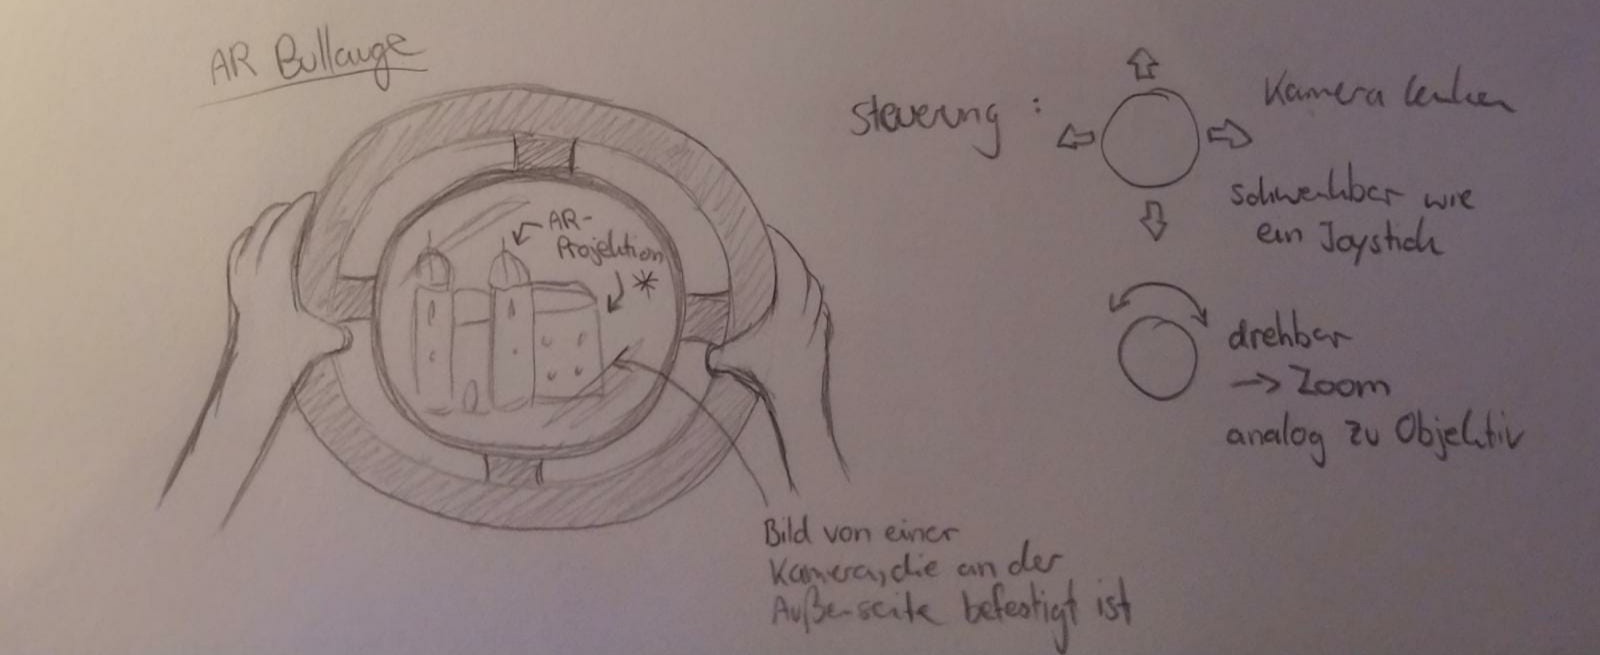 AR Bullauge
AR-
Projektion
*
Bild von einer
Kamera, die an der
Außenseite befestigt ist
Steuerung :
Kamera lenken
schwenkbar wie
ein Joystick
drehbar
→ Zoom
analog zu Objektiv